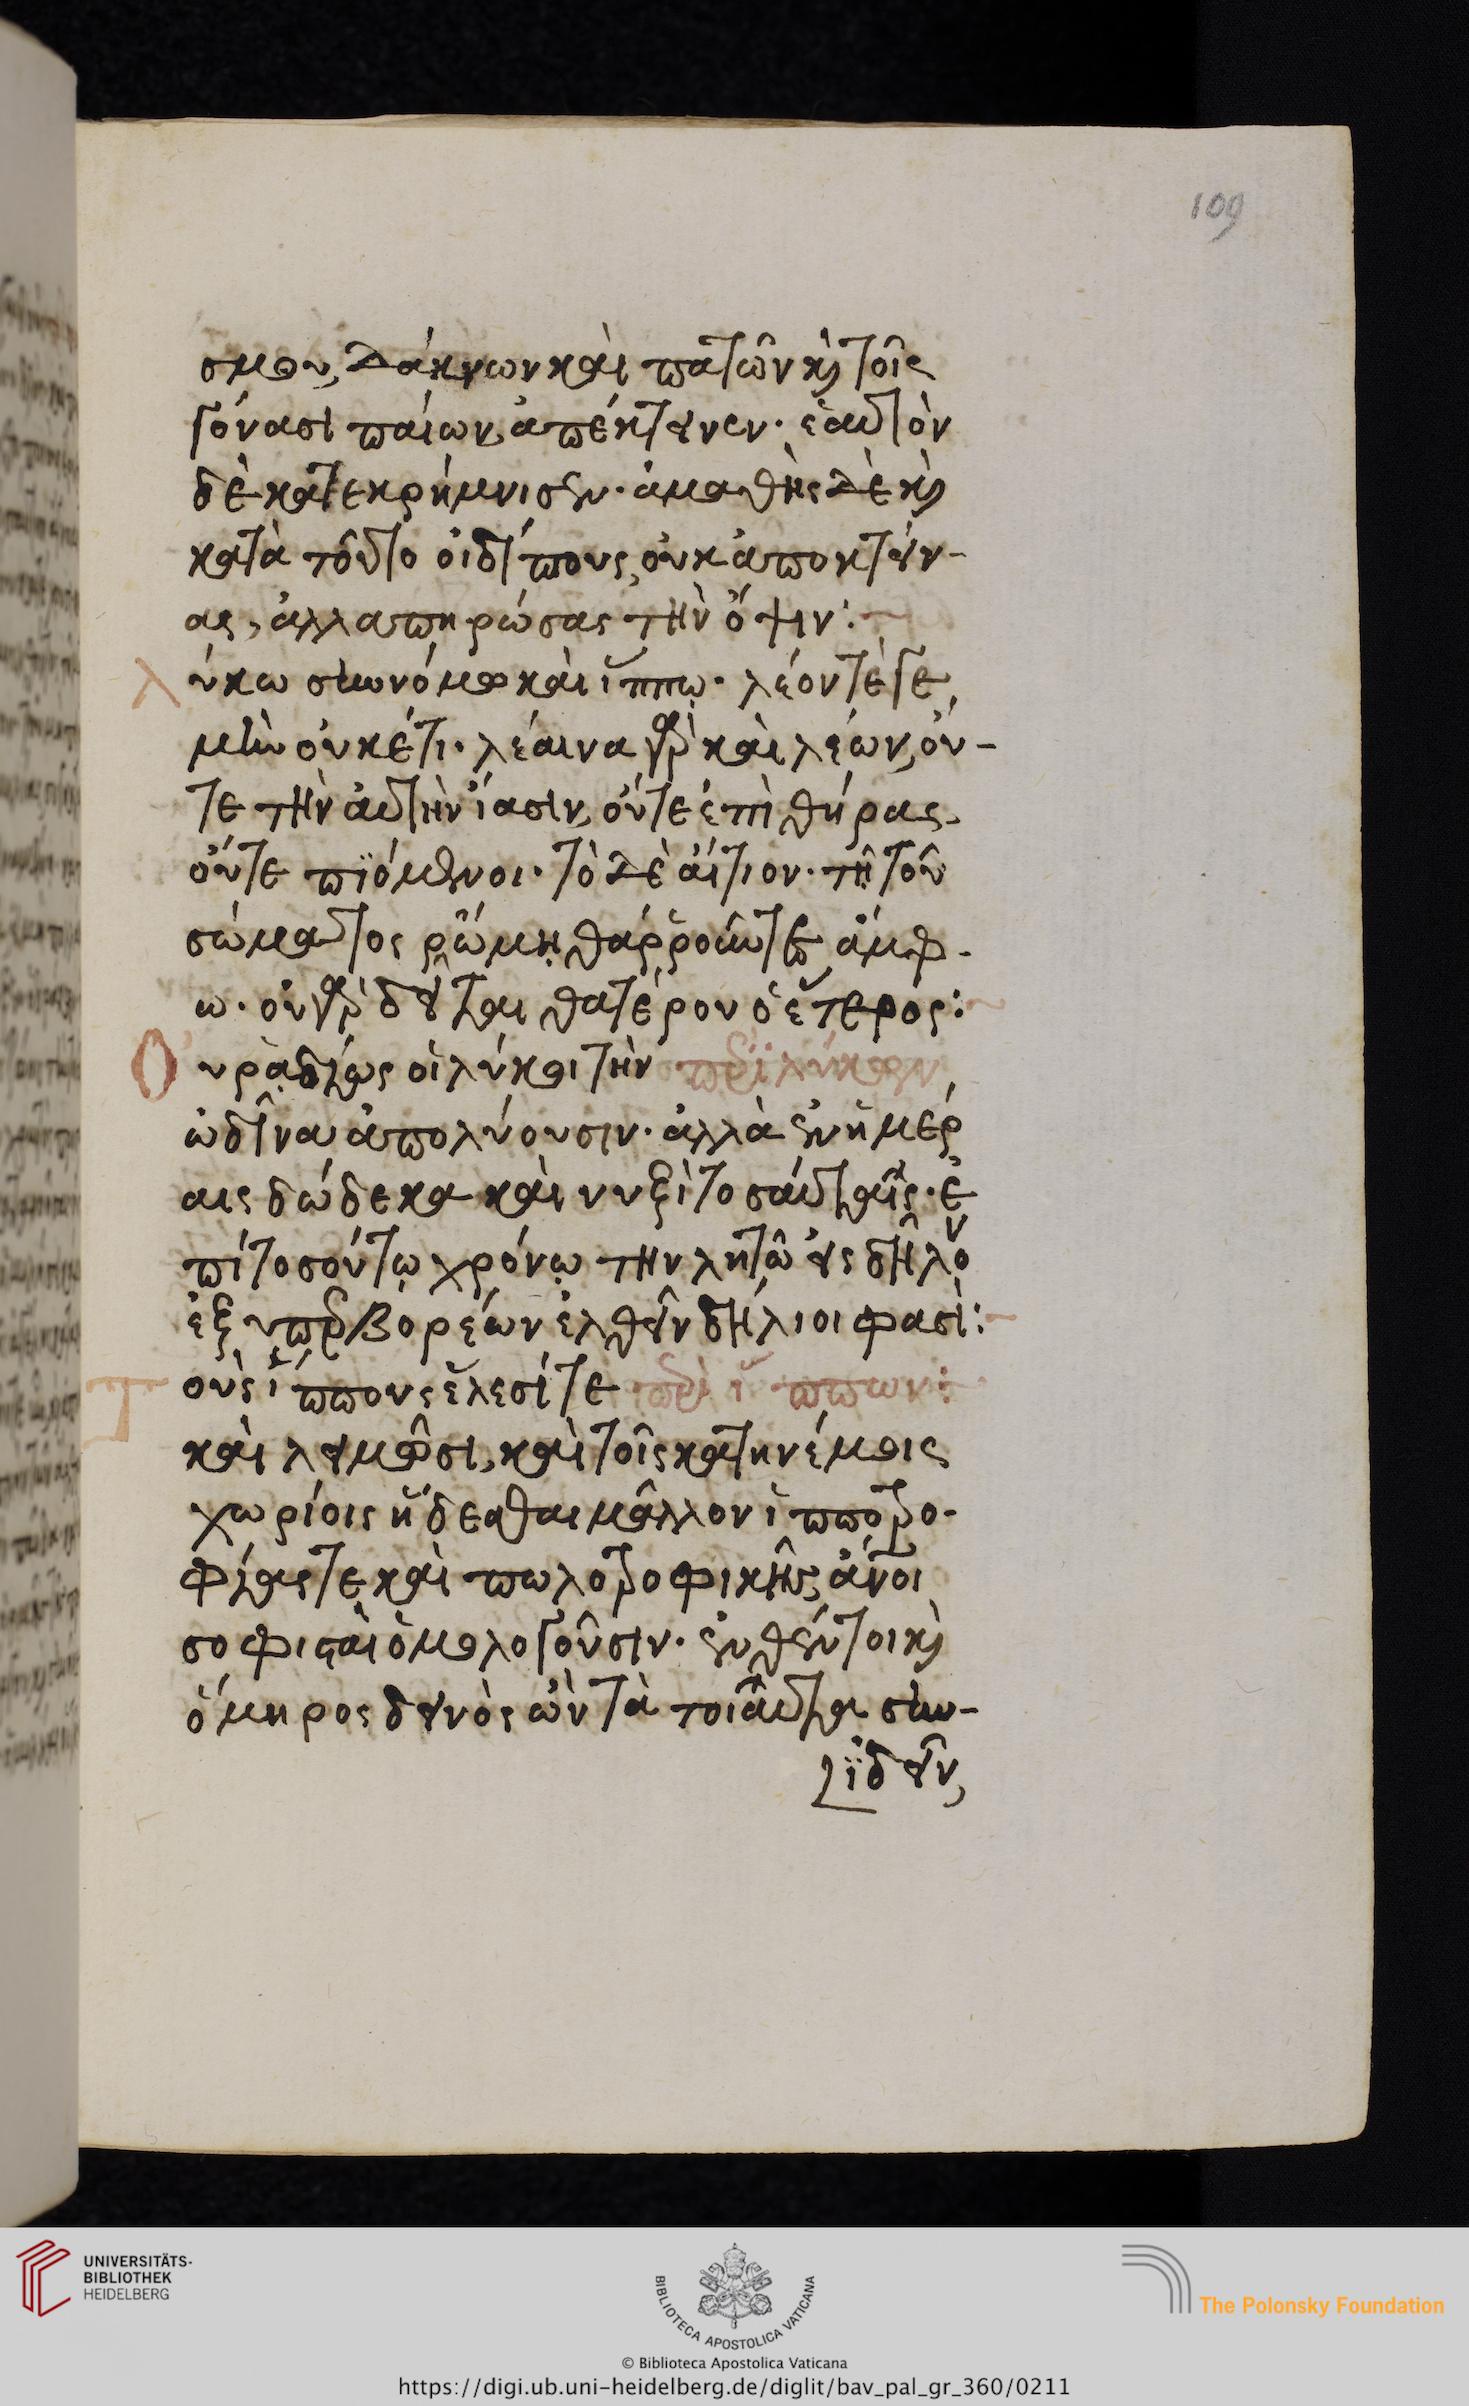 109
σμου, δάκνων καὶ πατῶν κὶ τοῖς
γόνασι παίων, ἀπέκτεινεν· ἑαυτὸν
δὲ κατεκρήμνισεν· ἀμαθὴς δὲ κὶ
κατὰ τοῦτο οἰδίπους, οὐκ ἀποκτείν-
ας, ἀλλα πηρώσας τὴν ὄψιν:~
λύκω συννόμω καὶ ἵππω· λέοντέ γε
μὴν οὐκέτι· λέαινα γὰρ καὶ λέων, οὐ-
τε τὴν ἀυτὴν ἴασιν, οὔτε ἐπὶ θήρας,
οὔτε πϊόμενοι· τὸ δὲ αἴτιον· τῇ τοῦ
σώματος ῥώμῃ θαρροῦντες ἄμφ-
ω· οὐ γὰρ δεῖται θατέρου ὁ ἕτερος:~
Οὐ ῥᾳδίως οἱ λύκοι τὴν περὶ λύκων
ὠδῖνα ἀπολύουσιν· ἀλλὰ ἐν ἡμέρ
αις δώδεκα καὶ νυξὶ τοσαύταις· ἐ
πὶ τοσούτῳ χρόνῳ τὴν λητῶ εἰς δῆλον
ἐξ υπερβορέων ἐλθεῖν δήλιοι φασὶ:~
Τοὺς ἵππους ἕλεσί τε περὶ ἵππων:
καὶ λειμῶσι, καὶ τοῖς κατηνέμοις
χωρίοις ἥδεσθαι μᾶλλον ἱπποτρο-
φίας τε καὶ πωλοτροφικῆς ἄνοι
σοφισταὶ ὁμολογοῦσιν· ἐνθέντοι κὶ
ὅμηρος δεινὸς ὢν τὰ τοιαῦτα συν-
ϊδεῖν,
UNIVERSITÄTS-
BIBLIOTHEK
HEIDELBERG
BIBLIOTECA APOSTOLICA VATICANA
The Polonsky Foundation
© Biblioteca Apostolica Vaticana
https://digi.ub.uni-heidelberg.de/diglit/bav_pal_gr_360/0211